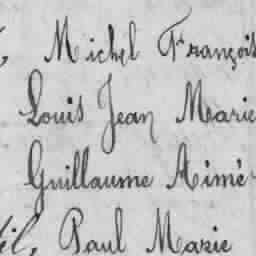 Michel François
Louis Jean Marie
Guillaume Aimé
Paul Marie